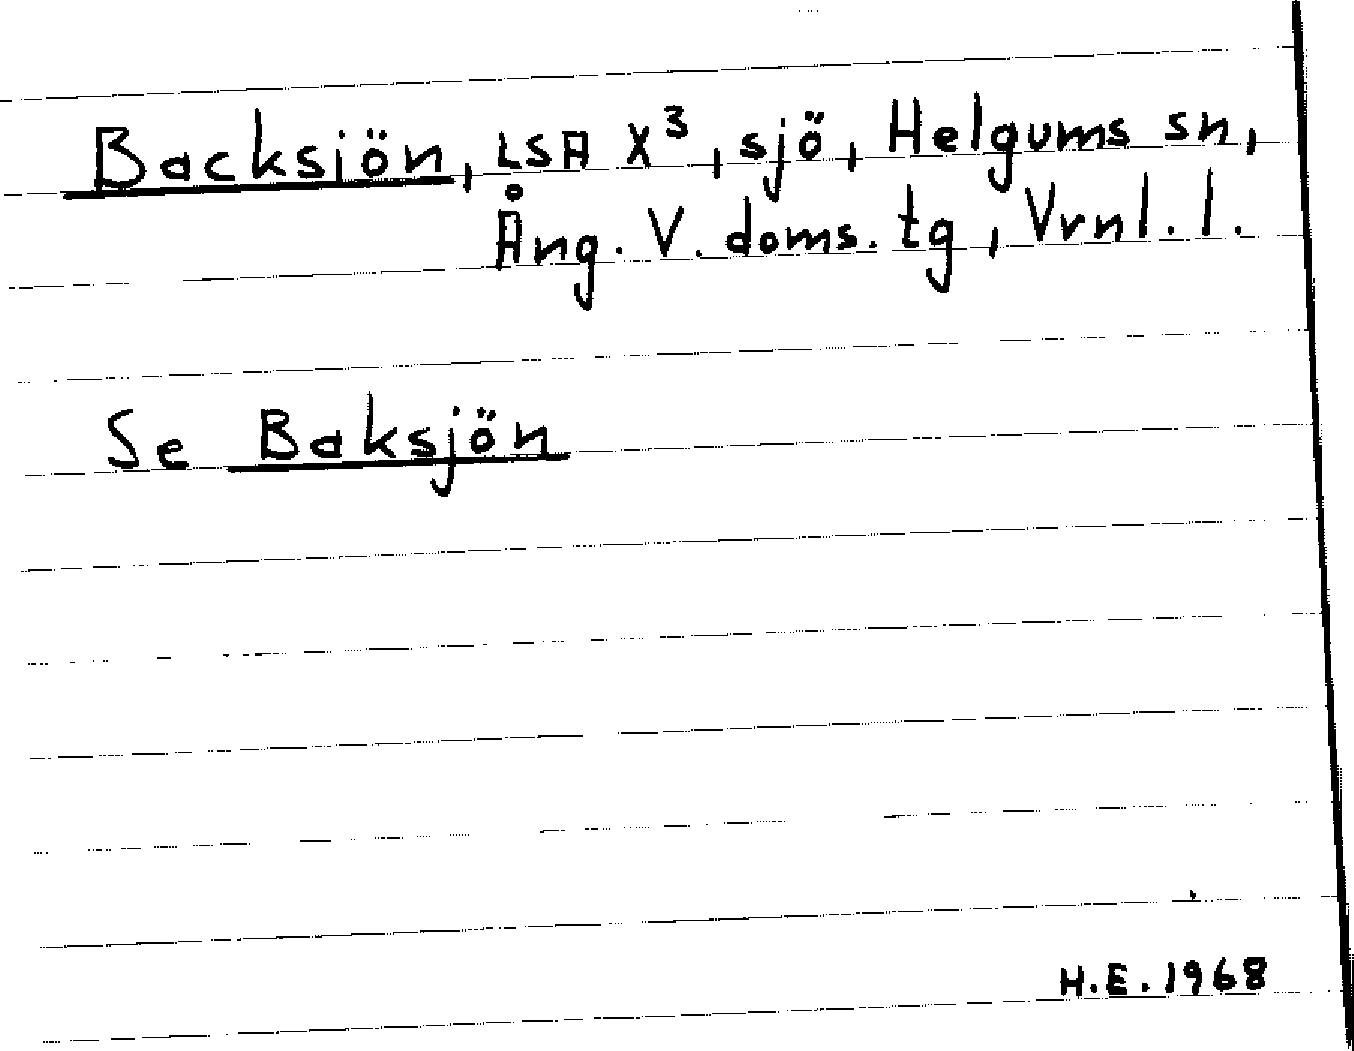 Backsjön, LSA X³, sjö, Helgums sn,
Ång. V. doms. tg, Vrnl. l.
Se Baksjön
H.E. 1968